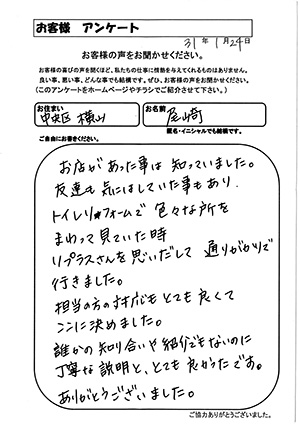 お客様 アンケート
31年1月24日
お客様の声をお聞かせください。
お客様の喜びの声を聞くほど、私たちの仕事に情熱を与えてくれるものはありません。
良い事、悪い事、どんな事でも結構です。ぜひ、お客様の声をお聞かせください。
(このアンケートをホームページやチラシでご紹介させて下さい。)
お住まい お名前
中央区 横山 尾崎
匿名・イニシャルでも結構です。
ご自由にお書きください。
お店があった事は知っていました。
友達も気にはしていた事もあり、
トイレリフォームで色々な所を
まわって見ていた時
リプラスさんを思いだして 通りがかりで
行きました。
担当の方の対応もとても良くて
ここに決めました。
誰かの知り合いや紹介でもないのに
丁寧な説明と、とても良かったです。
ありがとうございました。
ご協力ありがとうございました。